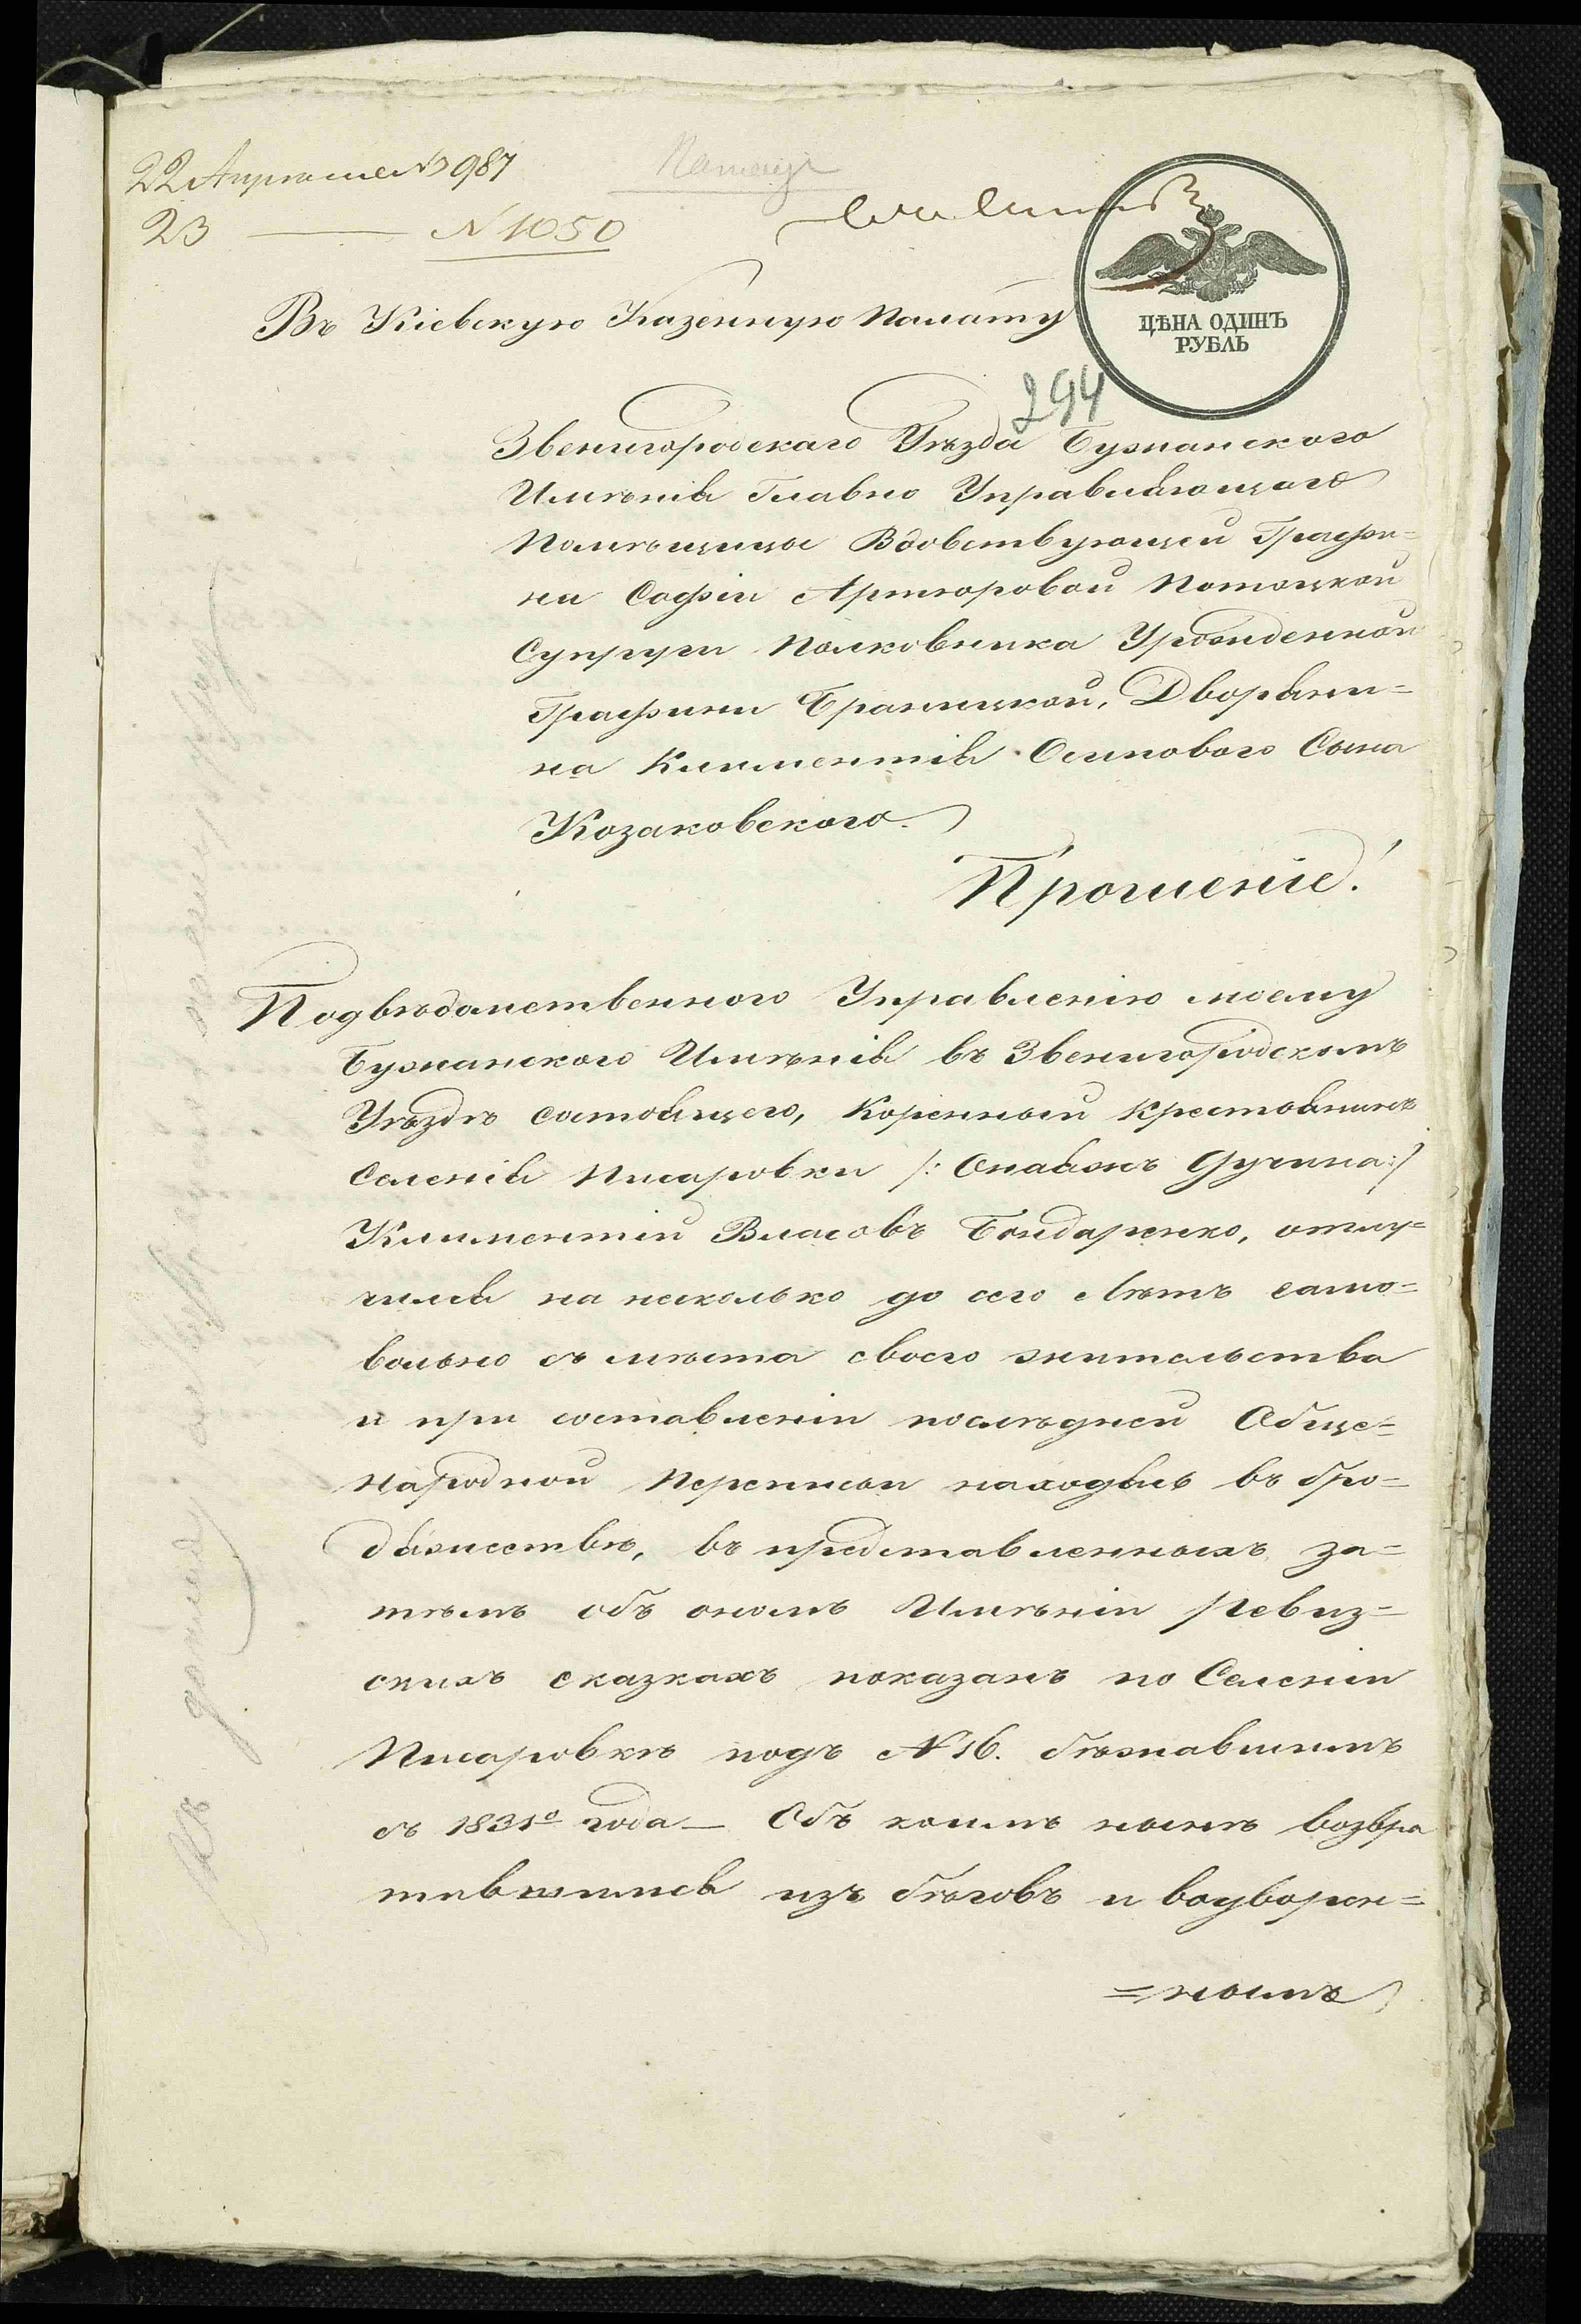 22 Апреля № 987
23 — № 1050
ЦѢНА ОДИНЪ
РУБЛЬ
Въ Кіевскую Казенную Палату
294
Звенигородскаго Уѣзда Бужанского
Имѣнія Главно Управляющаго
Помѣщицы Вдовствующей Графи=
ни Софіи Артуровой Потоцкой
Супруги Полковника Урожденной
Графини Браницкой, Дворяни=
на Климентія Осипового Сына
Козаковского.
Прошеніе!
Подвѣдомственного Управленію моему
Бужанского Имѣнія въ Звенигородскомъ
Уѣздѣ состоящего, Коренный крестьянинъ
Селенія Писаровки /: Онаяжъ Дучина:/
Климентій Власовъ Бондаренко, отлу=
чился на несколько до сего Лѣтъ само=
вольно съ мѣста своего жительства
и при составленіи послѣдней Обще=
Народной Переписи находясь въ бро=
дяжествѣ, въ представленныхъ за=
тѣмъ объ ономъ Имѣніи Ревиз=
скихъ сказкахъ показанъ по Селенію
Писаровкѣ подъ № 16. бѣжавшимъ
съ 1831º года — Объ коимъ нынѣ возвра
тившимся изъ бѣговъ и водворен=
=нымъ